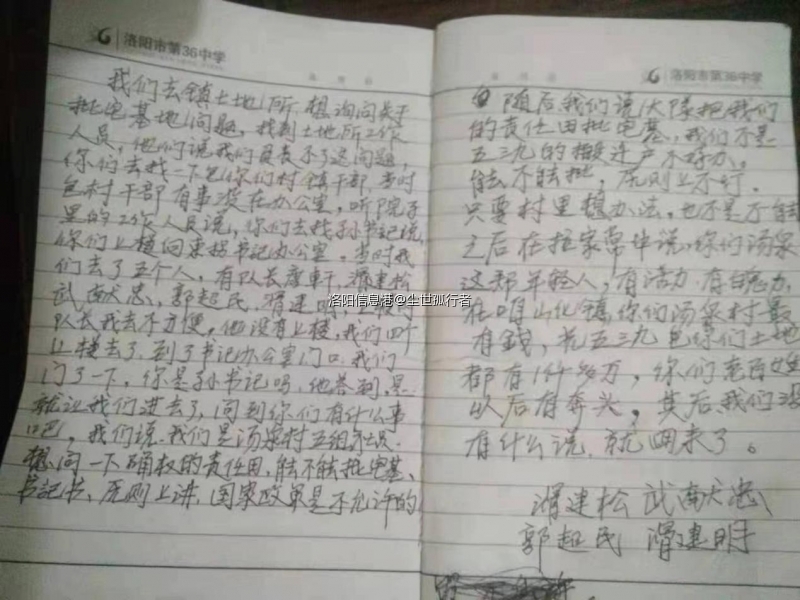 洛阳市第36中学
我们去镇土地所,想询问关于
批宅基地问题,找到土地所工作
人员,他们说我们负责不了这问题,
你们去找一下包你们村镇干部,当时
包村干部有事没在办公室,听院子
里的工作人员说,你们去找孙书记说,
你们上楼向东拐书记办公室,当时我
们去了五个人,有队长 滑建松
武献忠,郭超民,滑建明
队长我去不方便,他没有上楼,我们四个
上楼去了,到了书记办公室门口,我们
问了一下,你是孙书记吗,他答到,是
就让我们进去了,问到你们有什么事
吧,我们说,我们是汤泉村五组
想问一下确权的责任田,能不能批宅基、
书记书、原则上讲,国家政策是不允许的
洛阳市第36中学
随后我们说,大队把我们
的责任田批宅基,我们不是
五三九的搬迁户不好办,
能不能批,原则上不行.
只要村里想办法,也不是不能
之后在拉家常中说,你们汤泉
这都年轻人,有活力,有魄力,
在 山化镇,你们汤泉村最
有钱,光五三九包你们土地
都有1仟多万,你们老百姓
以后有奔头,其后我们没
有什么说,就回来了。
滑建松 武献忠
郭超民 滑建明
洛阳信息港@尘世孤行者